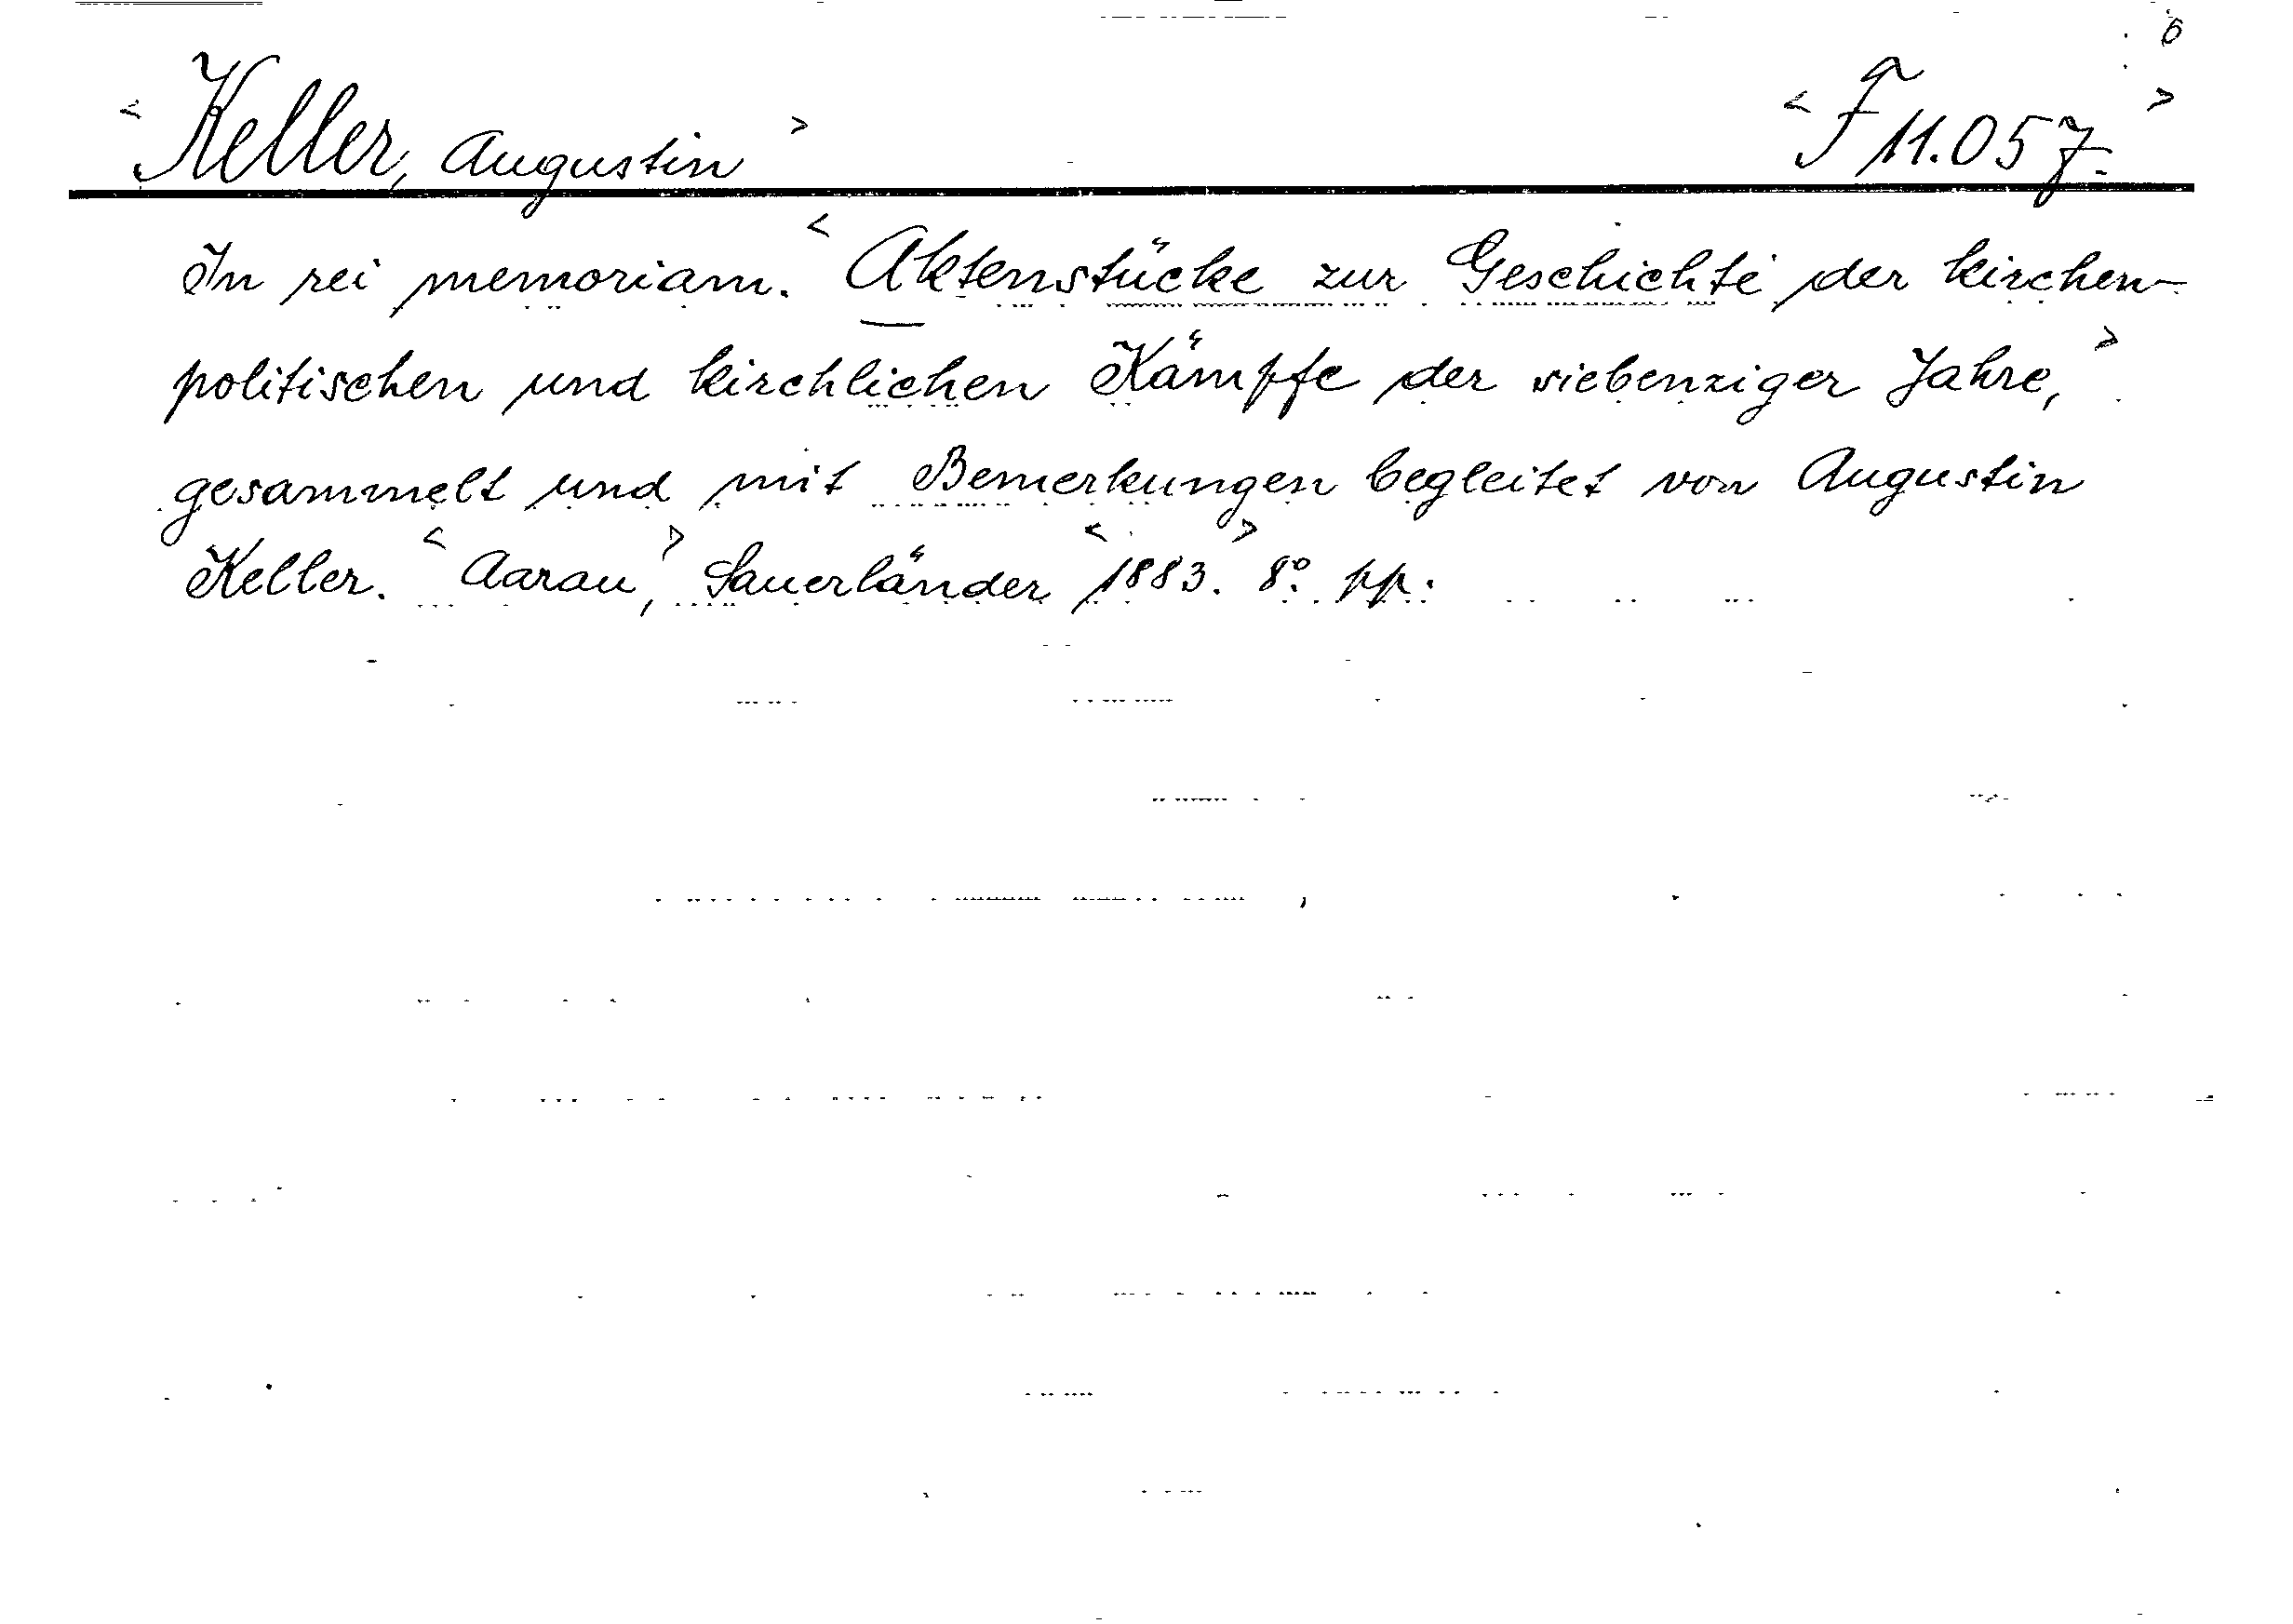 6
< Keller, Augustin > < F 11.057. >
In rei memoriam. < Aktenstücke zur Geschichte der kirchen-
politischen und kirchlichen Kämpfe der siebenziger Jahre, >
gesammelt und mit Bemerkungen begleitet von Augustin
Keller. < Aarau, > Sauerländer < 1883. > 8° pp.